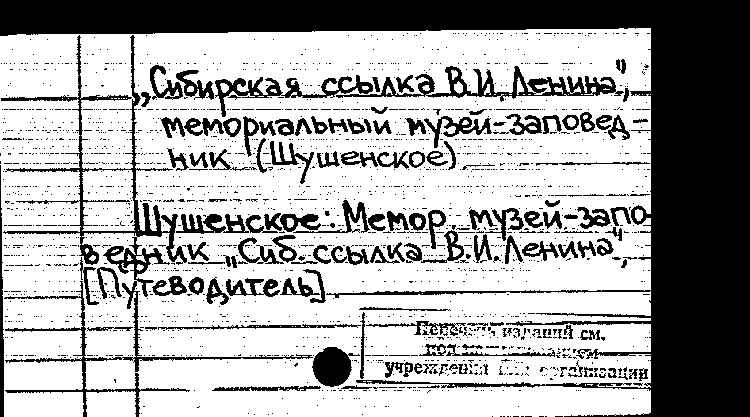 „Сибирская ссылка В.И. Ленина",
мемориальный музей-заповед-
ник (Шушенское).
Шушенское: Мемор. музей-запо-
ведник „Сиб. ссылка В.И. Ленина",
[Путеводитель].
Перечень изданий см.
под
учреждения или организации